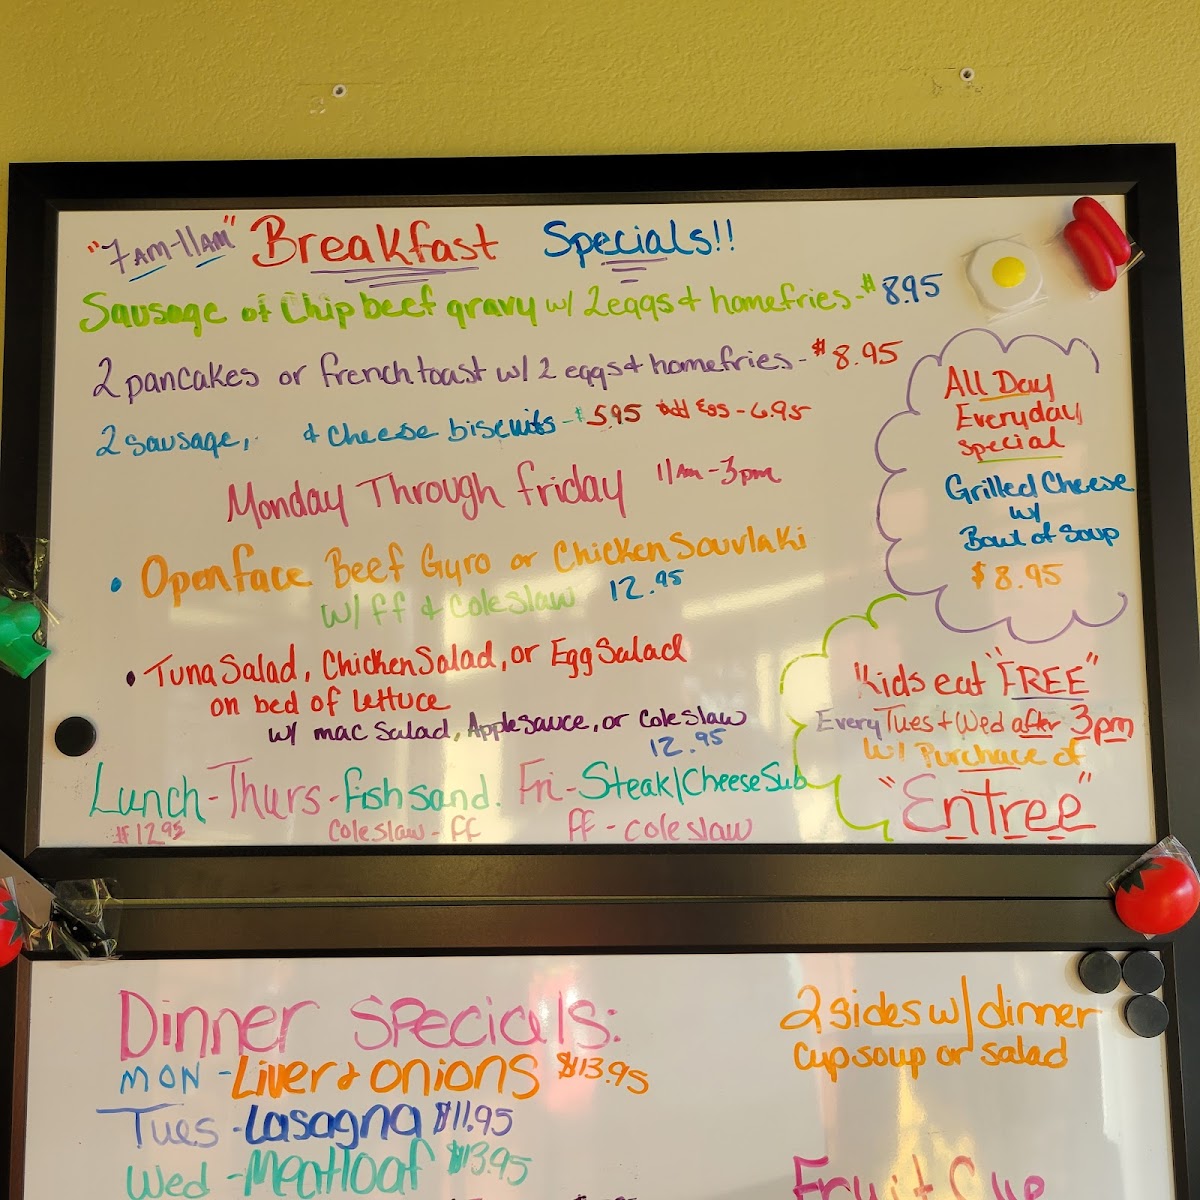 "7AM-11AM" Breakfast Specials!!
Sausage of Chip beef gravy w/ 2 eggs & homefries - $8.95
2 pancakes or french toast w/ 2 eggs & homefries - $8.95
2 sausage, & cheese biscuits - $5.95 Add Egg - 6.95
Monday Through Friday 11am-3pm
• Openface Beef Gyro or Chicken Souvlaki
w/ ff & Coleslaw 12.95
• Tuna Salad, Chicken Salad, or Egg Salad
on bed of lettuce
w/ mac Salad, Applesauce, or Coleslaw
12.95
Lunch - Thurs - fish sand. Fri - Steak/Cheese Sub
$12.95 Coleslaw - ff ff - coleslaw
All Day
Everyday
Special
Grilled Cheese
w/
Bowl of Soup
$8.95
Kids eat "FREE"
Every Tues & Wed after 3pm
w/ Purchace of
"Entree"
Dinner Specials:
MON - Liver & onions $13.95
Tues - Lasagna $11.95
Wed - Meatloaf $13.95
2 sides w/ dinner
cup soup or salad
Fruit Cup